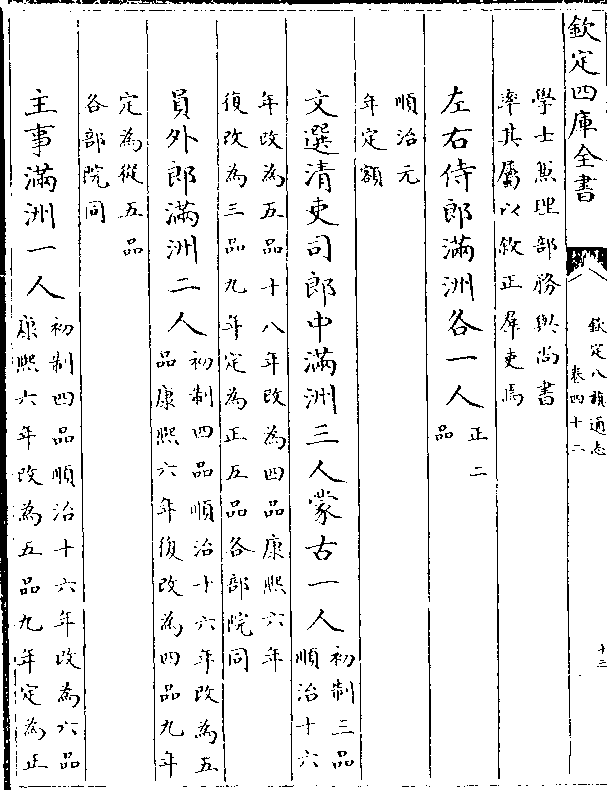 欽定四庫全書
欽定八旗通志
卷四十二
十三
學士兼理部務與尚書
率其屬以敘正羣吏焉
左右侍郎滿洲各一人正二
品
順治元
年定額
文選清吏司郎中滿洲三人蒙古一人初制三品
順治十六
年改為五品十八年改為四品康熙六年
復改為三品九年定為正五品各部院同
員外郎滿洲二人初制四品順治十六年改為五
品康熙六年復改為四品九年
定為從五品
各部院同
主事滿洲一人初制四品順治十六年改為六品
康熙六年改為五品九年定為正